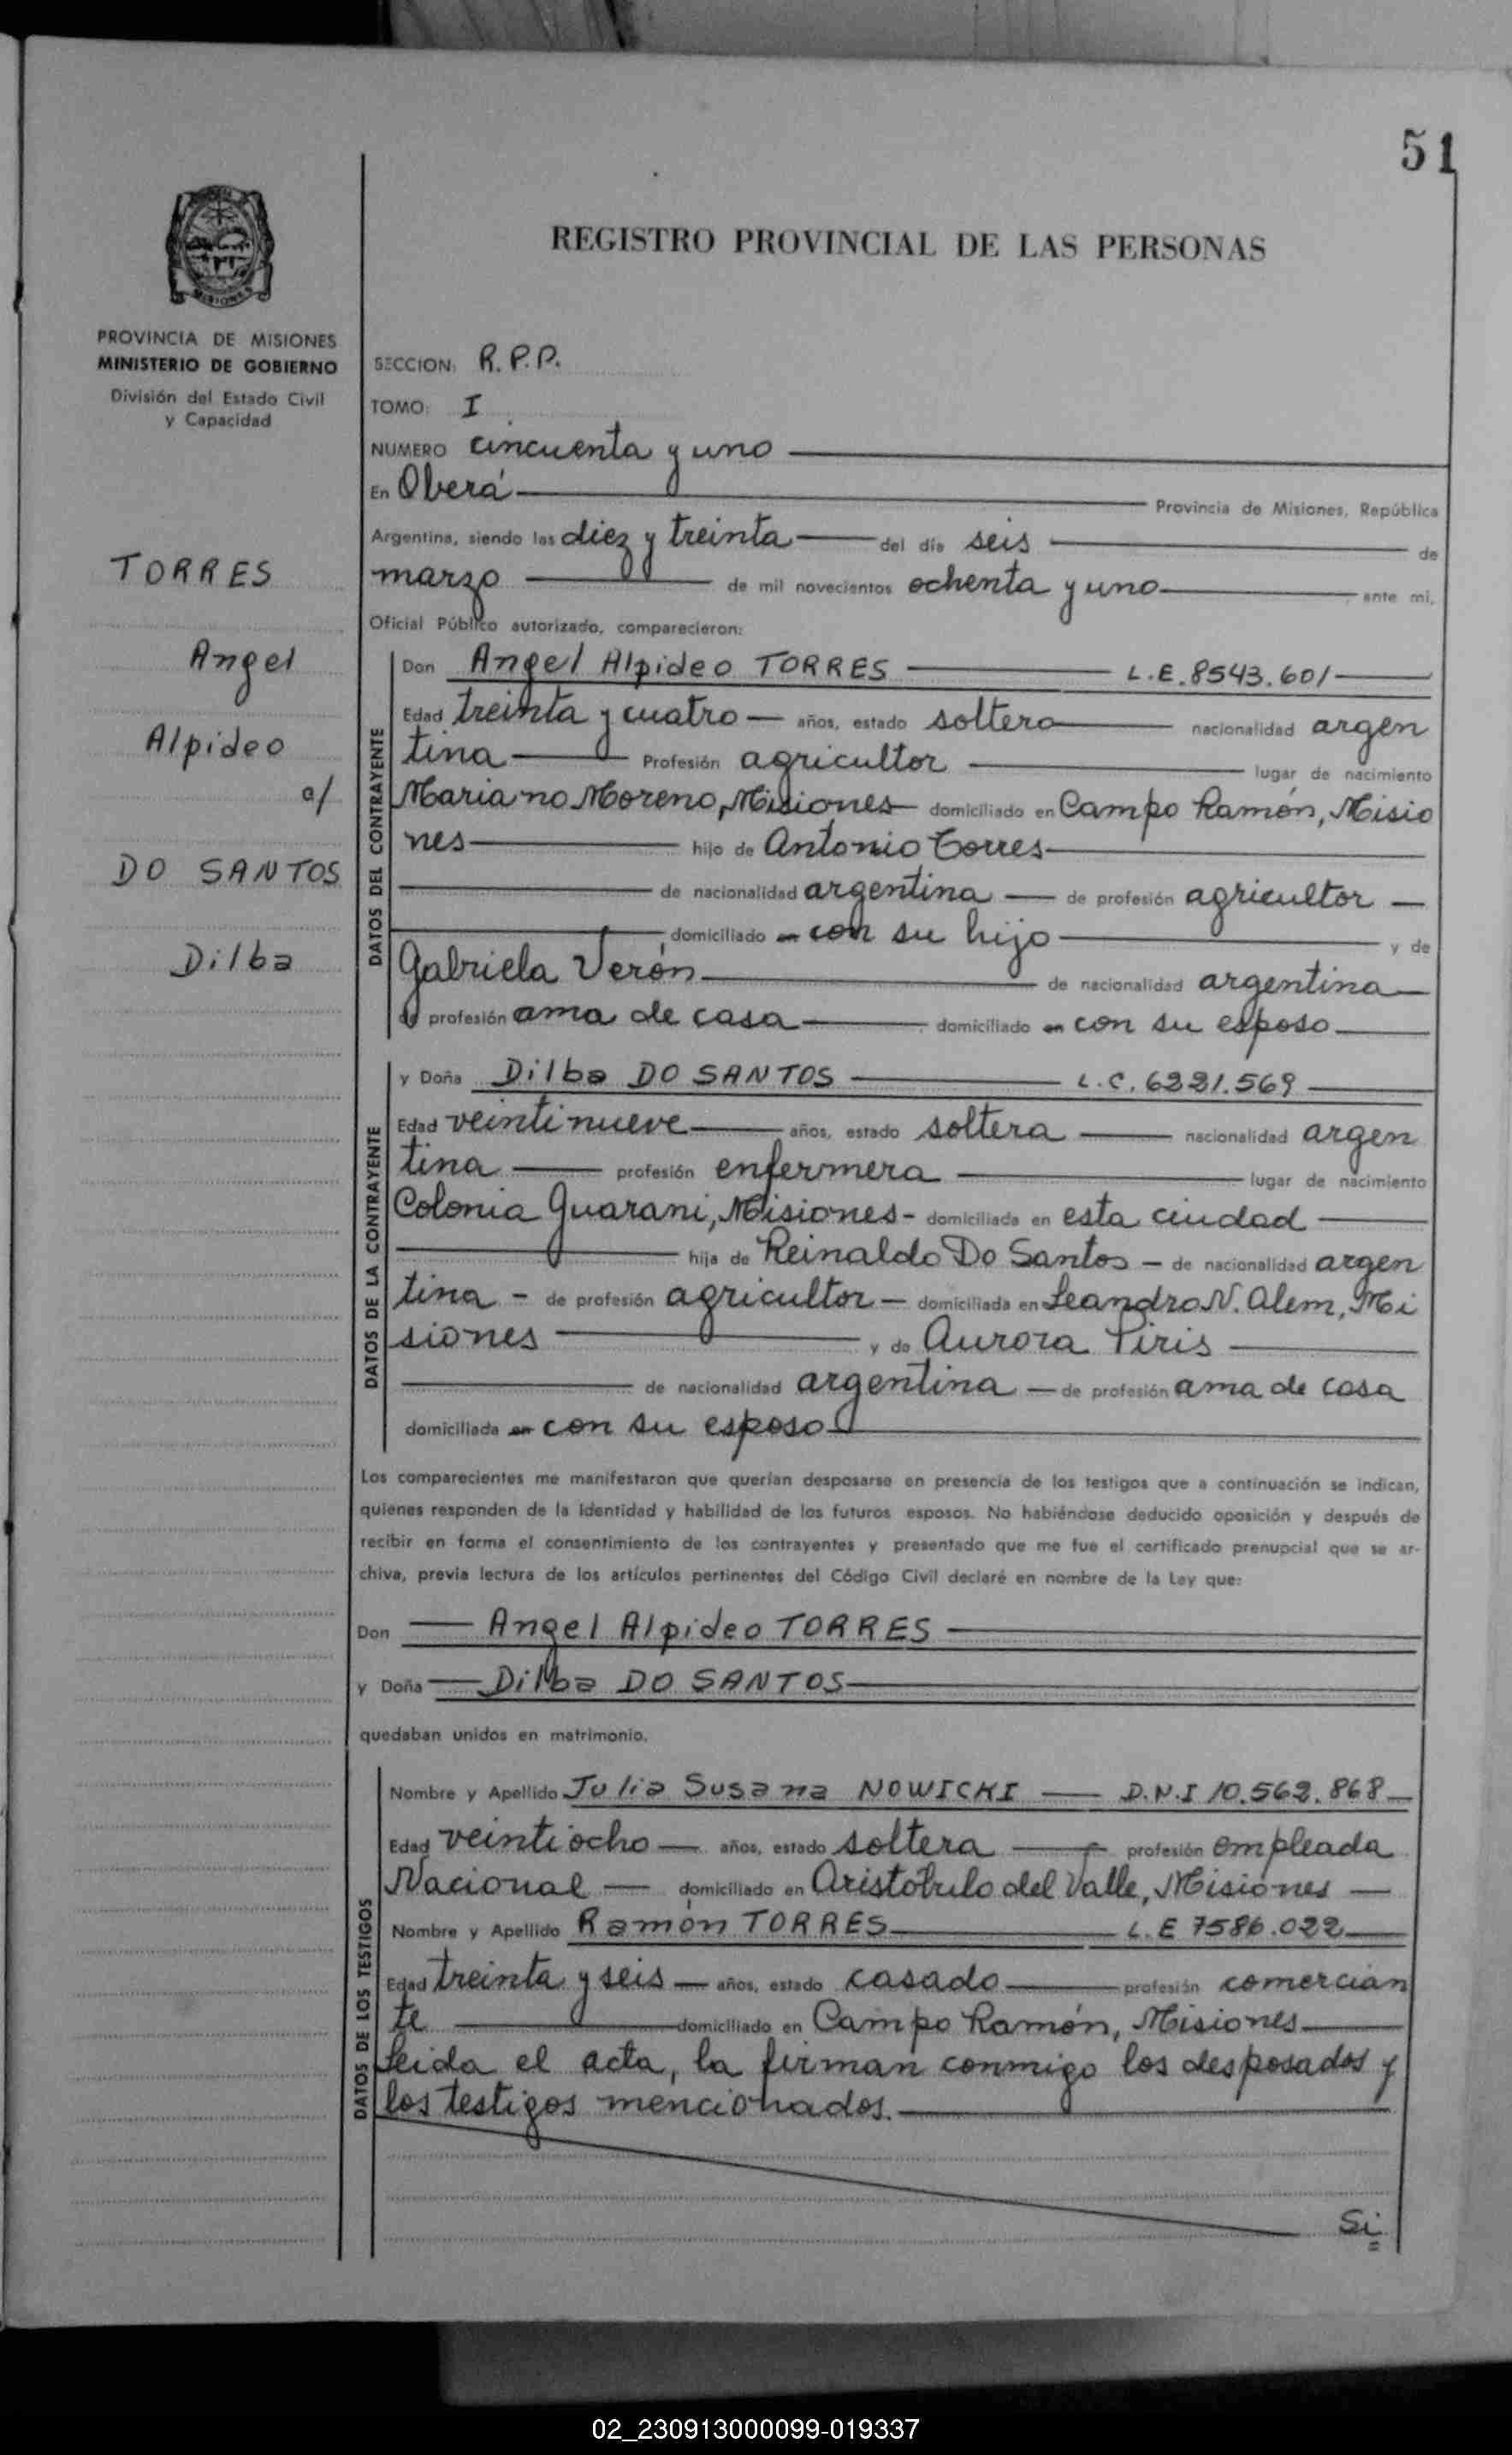 51
MISIONES
REGISTRO PROVINCIAL DE LAS PERSONAS
PROVINCIA DE MISIONES
MINISTERIO DE GOBIERNO
División del Estado Civil
y Capacidad
TORRES
Angel
Alpideo
c/
DO SANTOS
Dilba
SECCION: R.P.P.
TOMO: I
NUMERO cincuenta y uno
En Oberá Provincia de Misiones, República
Argentina, siendo las diez y treinta del día seis de
marzo de mil novecientos ochenta y uno ante mi,
Oficial Público autorizado, comparecieron:
DATOS DEL CONTRAYENTE
Don Angel Alpideo TORRES L.E. 8543.601
Edad treinta y cuatro años, estado soltero nacionalidad argen
tina Profesión agricultor lugar de nacimiento
Mariano Moreno, Misiones domiciliado en Campo Ramón, Misio
nes hijo de Antonio Torres
de nacionalidad argentina de profesión agricultor
domiciliado en con su hijo y de
Gabriela Verón de nacionalidad argentina
de profesión ama de casa domiciliado en con su esposo
DATOS DE LA CONTRAYENTE
y Doña Dilba DO SANTOS L.C. 6221.569
Edad veintinueve años, estado soltera nacionalidad argen
tina profesión enfermera lugar de nacimiento
Colonia Guarani, Misiones - domiciliada en esta ciudad
hija de Reinaldo Do Santos - de nacionalidad argen
tina - de profesión agricultor - domiciliada en Leandro N. Alem, Mi
siones y de Aurora Piris
de nacionalidad argentina - de profesión ama de casa
domiciliada en con su esposo
Los comparecientes me manifestaron que querían desposarse en presencia de los testigos que a continuación se indican,
quienes responden de la identidad y habilidad de los futuros esposos. No habiéndose deducido oposición y después de
recibir en forma el consentimiento de los contrayentes y presentado que me fue el certificado prenupcial que se ar-
chiva, previa lectura de los artículos pertinentes del Código Civil declaré en nombre de la Ley que:
Don Angel Alpideo TORRES
y Doña Dilba DO SANTOS
quedaban unidos en matrimonio.
DATOS DE LOS TESTIGOS
Nombre y Apellido Julia Susana NOWICKI D.N.I 10.562.868
Edad veintiocho años, estado soltera profesión empleada
Nacional domiciliado en Aristobulo del Valle, Misiones
Nombre y Apellido Ramón TORRES L.E 7586.022
Edad treinta y seis años, estado casado profesión comercian
te domiciliado en Campo Ramón, Misiones
Leida el acta, la firman conmigo los desposados y
los testigos mencionados.
Si
02_230913000099-019337